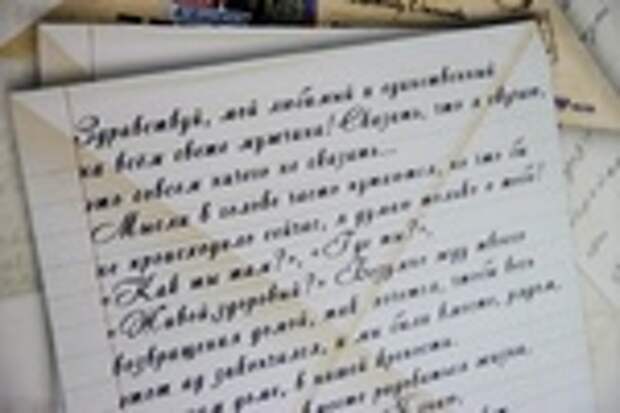 Здравствуй, мой любимый и единственный
на всем свете мужчина! Сказать, что я скучаю,
это совсем ничего не сказать...
Мысли в голове часто путаются, но что бы
не происходило сейчас, я думаю только о тебе!
«Как ты там?», «Где ты?»,
«Живой, здоровый?» Безумно жду твоего
возвращения домой, так хочется, чтобы весь
этот ад закончился, и мы были вместе, рядом,
доме, в нашей крепости.
просто радоваться жизни.